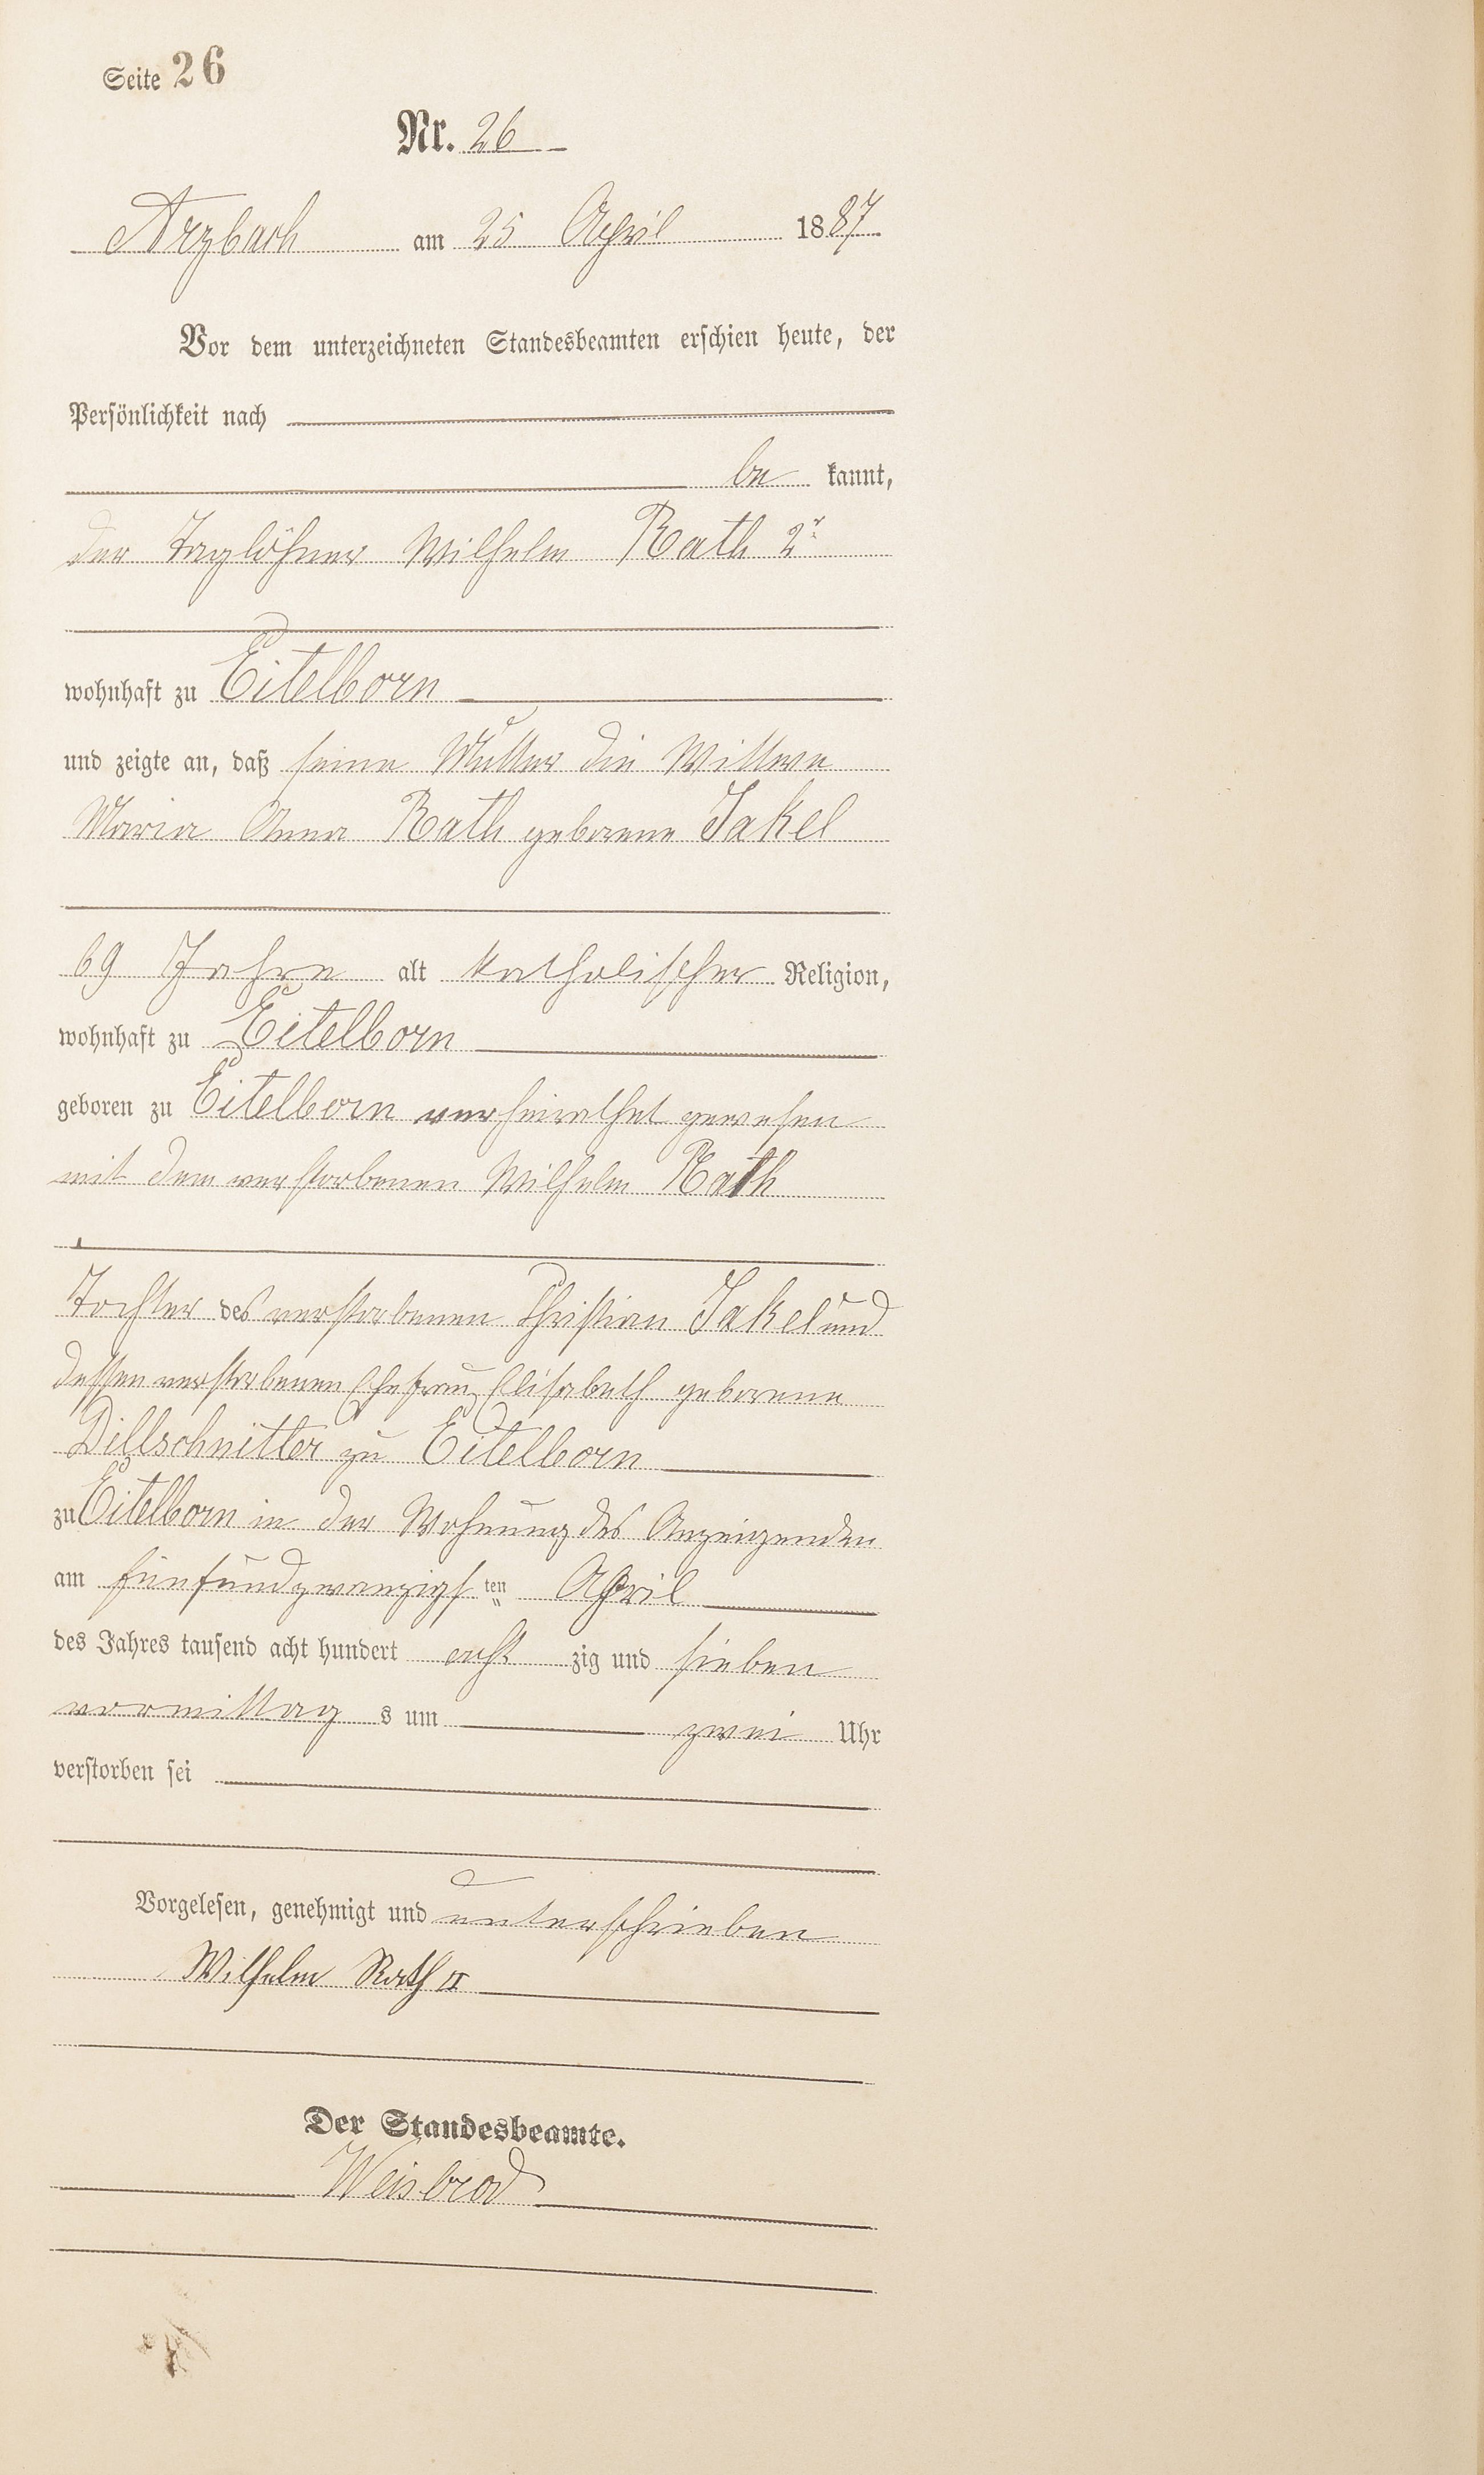 Seite 26
Nr. 26
Arzbach am 25 April 1887.
Vor dem unterzeichneten Standesbeamten erschien heute, der
Persönlichkeit nach
be kannt,
der Taglöhner Wilhelm Rath 2r
wohnhaft zu Eitelborn
und zeigte an, daß seine Mutter die Wittwe
Maria Anna Rath geborene Jakel
69 Jahre alt katholischer Religion,
wohnhaft zu Eitelborn
geboren zu Eitelborn verheirathet gewesen
mit dem verstorbenen Wilhelm Rath
Tochter des verstorbenen Christian Jakel und
dessen verstorbenen Ehefrau Elisabeth geborene
Dillschnitter zu Eitelborn
zu Eitelborn in der Wohnung des Anzeigenden
am fünfundzwanzigsten April
des Jahres tausend acht hundert acht zig und sieben
vormittag s um zwei Uhr
verstorben sei
Vorgelesen, genehmigt und unterschrieben
Wilhelm Rath II
Der Standesbeamte.
Weisbrod